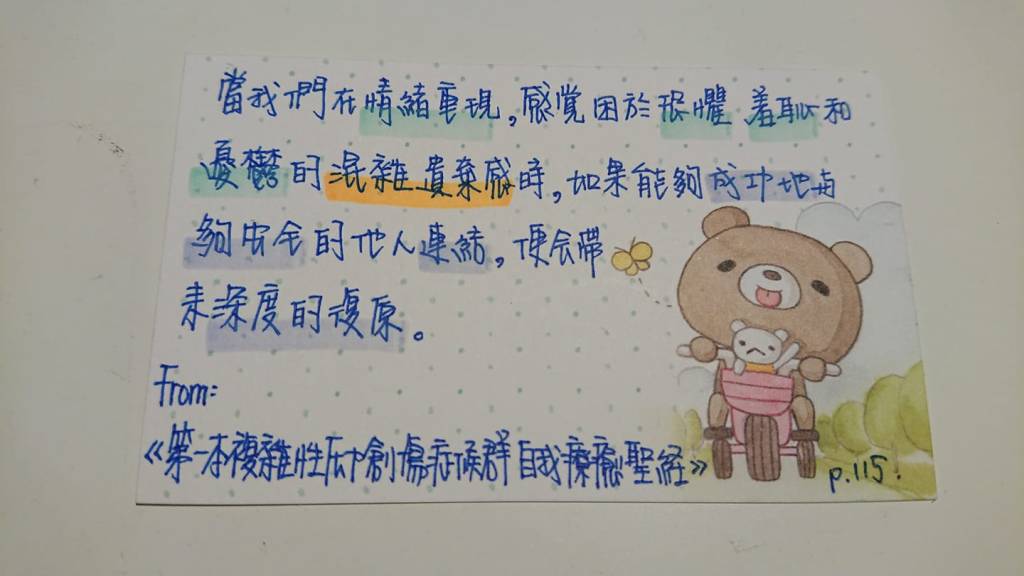 當我們在情緒重現，感覺困於恐懼、羞恥和
憂鬱的混雜遺棄感時，如果能夠成功地與
夠安全的他人連結，便会帶
來深度的復原。
From:
《第一本複雜性ptsd創傷症候群自我療癒聖経》
p.115.